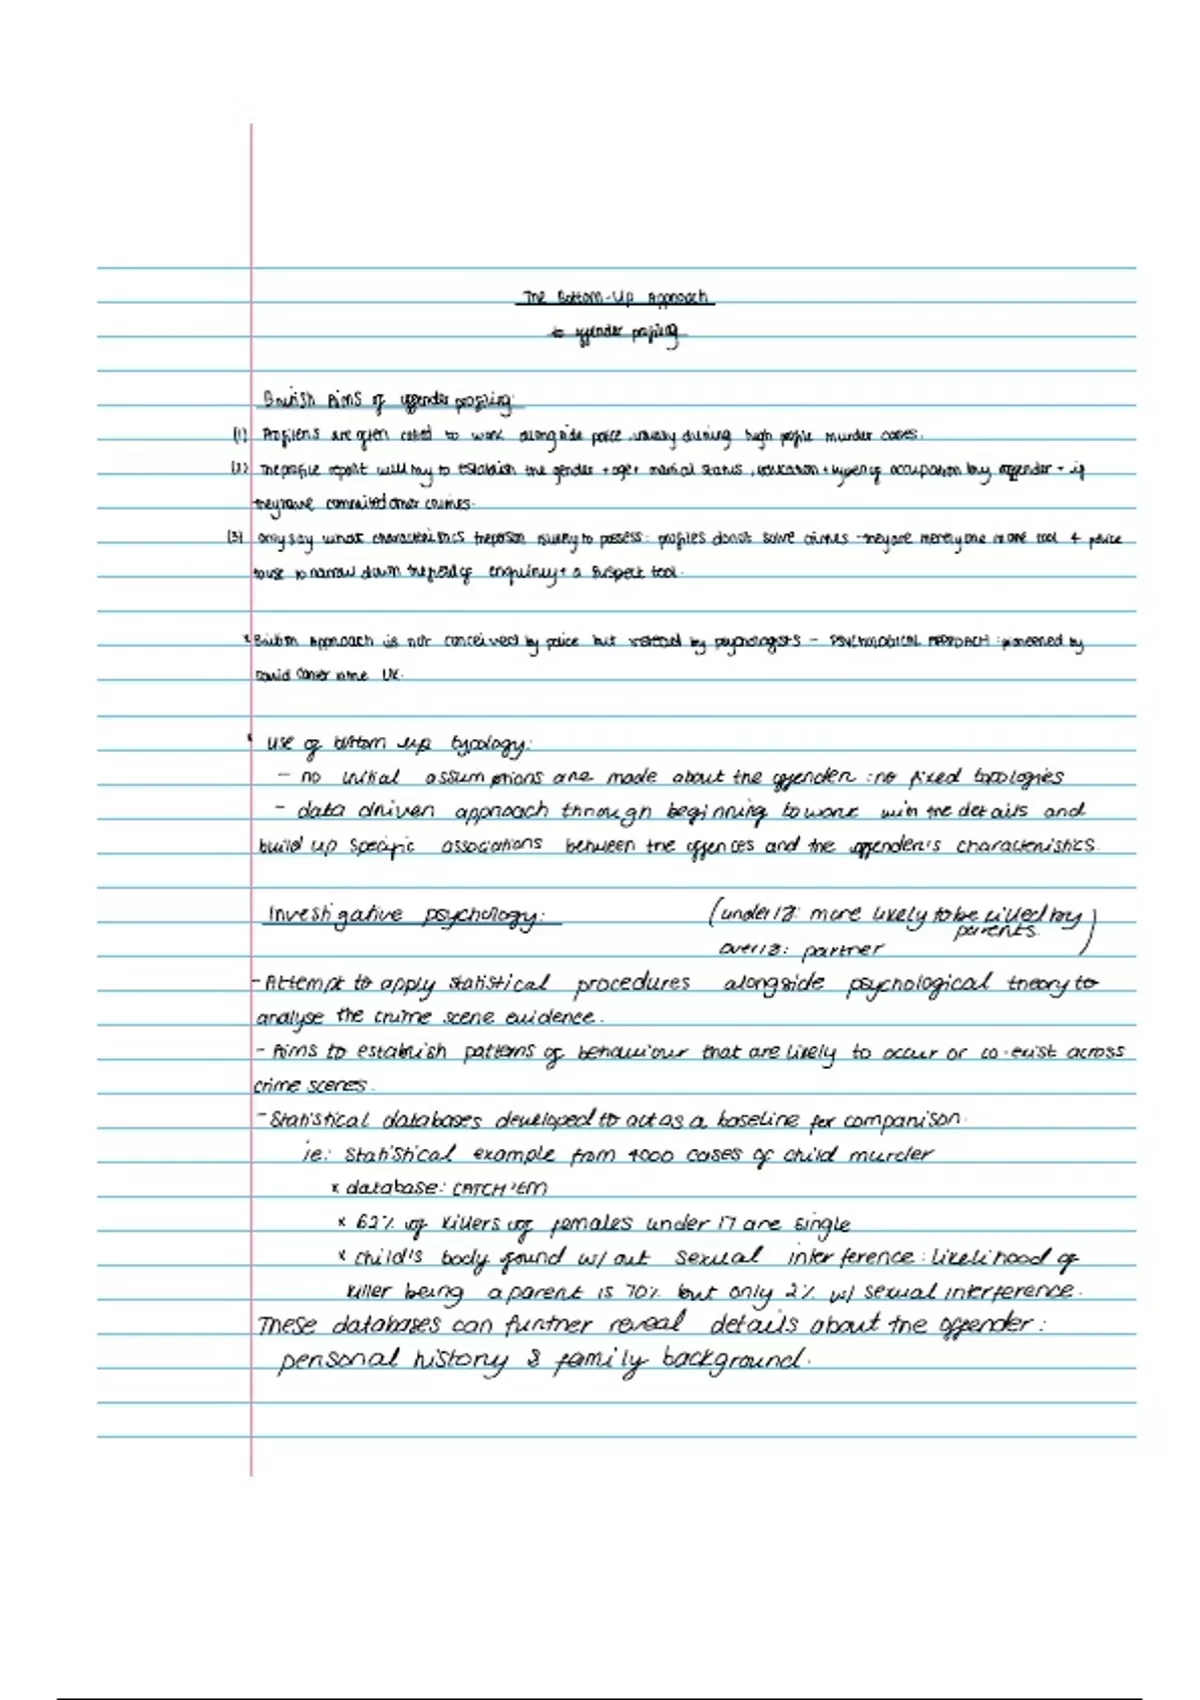 The Bottom-Up Approach
to offender profiling
British Aims of offender profiling:
(1) Profilers are often called to work alongside police usually during high profile murder cases.
(2) The profile report will try to establish the gender + age + marital status, education + type of occupation by offender + if
they have committed other crimes.
(3) Only say what characteristics the person is likely to possess: profiles do not solve crimes - they are merely one more tool 4 police
to use to narrow down the field of enquiry + a suspect tool.
* British Approach is not conceived by police but by psychologists - PSYCHOLOGICAL APPROACH: pioneered by
David Canter in the UK.
* use of bottom up typology:
- no initial assumptions are made about the offender: no fixed topologies
- data driven approach through beginning to work with the details and
build up specific associations between the offences and the offender's characteristics.
Investigative psychology: (under 18: more likely to be killed by
parents.
over 18: partner)
- Attempt to apply statistical procedures alongside psychological theory to
analyse the crime scene evidence.
- Aims to establish patterns of behaviour that are likely to occur or co-exist across
crime scenes.
- Statistical databases developed to act as a baseline for comparison.
ie: Statistical example from 4000 cases of child murder
* database: CATCH'EM
* 62% of killers of females under 17 are single
* child's body found w/ out sexual interference: likelihood of
killer being a parent is 70% but only 2% w/ sexual interference.
These databases can further reveal details about the offender:
personal history & family background.